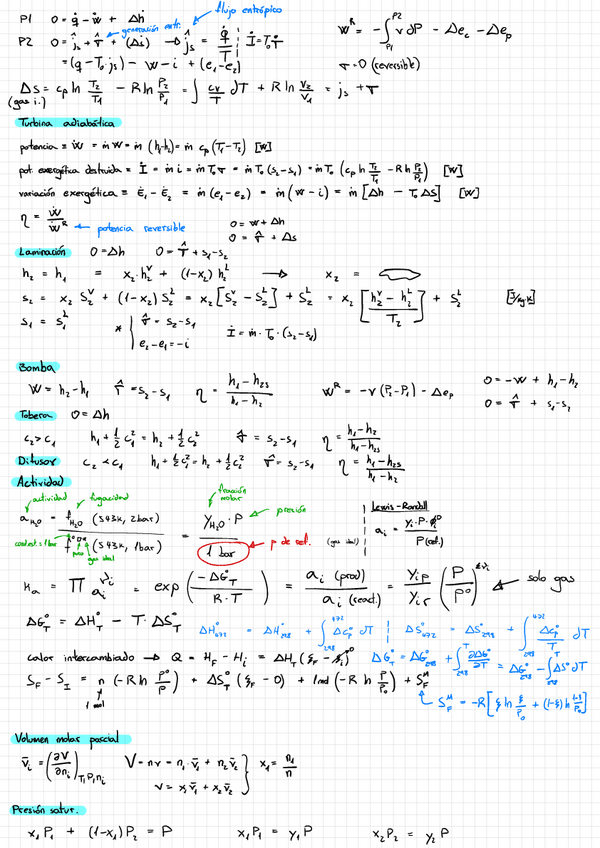 P1 0 = q̇ - ẇ + Δh flujo entrópico
P2 0 = ĵs + σ̂ + (Δs) → ĵs = q̇/T | İ = T₀σ̇ generación entr.
= (q - T₀js) - w - i + (e₁-e₂)
wᴿ = -∫_{P1}^{P2} v dP - Δec - Δep
σ = 0 (reversible)
Δs = cp ln T₂/T₁ - R ln P₂/P₁ = ∫ cv/T dT + R ln v₂/v₁ = js + σ
(gas i.)
Turbina adiabática
potencia = Ẇ = ṁ w = ṁ (h₁-h₂) = ṁ cp (T₁-T₂) [W]
pot exergética destruida = İ = ṁ i = ṁ T₀ σ = ṁ T₀ (s₂-s₁) = ṁ T₀ (cp ln T₂/T₁ - R ln P₂/P₁) [W]
variación exergética = Ė₁ - Ė₂ = ṁ (e₁-e₂) = ṁ (w - i) = ṁ [Δh - T₀ΔS] [W]
η = Ẇ/Ẇᴿ ← potencia reversible
0 = w + Δh
0 = σ̂ + Δs
Laminación 0 = Δh 0 = σ̂ + s₁-s₂
h₂ = h₁ = x₂·h₂ⱽ + (1-x₂) h₂ᴸ → x₂ =
s₂ = x₂ S₂ⱽ + (1-x₂) S₂ᴸ = x₂ [S₂ⱽ - S₂ᴸ] + S₂ᴸ = x₂ [(h₂ⱽ - h₂ᴸ)/T₂] + S₂ᴸ [J/kg K]
s₁ = s₁ᴸ * { σ̂ = s₂-s₁ İ = ṁ·T₀·(s₂-s₁)
e₂-e₁ = -i
Bomba
W = h₂-h₁ σ̂ = s₂-s₁ η = (h₁-h₂s)/(h₁-h₂) Wᴿ = -v (P₂-P₁) - Δep 0 = -w + h₁-h₂
0 = σ̂ + s₁-s₂
Tobera 0 = Δh
c₂ > c₁ h₁+½c₁² = h₂+½c₂² σ̂ = s₂-s₁ η = (h₁-h₂)/(h₁-h₂s)
Difusor c₂ < c₁ h₁+½c₁² = h₂+½c₂² σ̂ = s₂-s₁ η = (h₁-h₂s)/(h₁-h₂)
Actividad
actividad fugacidad fracción molar
a_H₂O = f_H₂O (543K, 2bar) / f° (543K, 1bar) = y_H₂O·P / 1 bar presión
puro gas ideal p de ref. (gas ideal)
Lewis-Randall
ai = yi·P·φi⁰ / P(ref.)
Ka = Π ai^νi = exp(-ΔG°T / R·T) = ai (prod) / ai (react.) = yip/yir (P/P°)^Σνi ← solo gas
ΔG°T = ΔH°T - T·ΔS°T
ΔH°₄₇₂ = ΔH°₂₉₈ + ∫₂₉₈⁴⁷² Δcp° dT | ΔS°₄₇₂ = ΔS°₂₉₈ + ∫₂₉₈⁴⁷² Δcp°/T dT
calor intercambiado → Q = HF - Hi = ΔHT (ξF - ξi)
ΔG°T = ΔG°₂₉₈ + ∫₂₉₈ᵀ ∂ΔG°/∂T = ΔG°₂₉₈ - ∫ΔS° dT
SF - SI = n (-R ln P/P°) + ΔS°T (ξF - 0) + 1 mol (-R ln P/P₀) + SFᴹ
1 mol
SFᴹ = -R[ξ ln ξ/P₀ + (1-ξ) ln (1-ξ)/P₀]
Volumen molar parcial
v̄i = (∂V/∂ni)T,P,nj V = nv = n₁·v̄₁ + n₂v̄₂ } x₁ = n₁/n
v = x₁v̄₁ + x₂v̄₂
Presión satur.
x₁P₁ + (1-x₁)P₂ = P x₁P₁ = y₁P x₂P₂ = y₂P